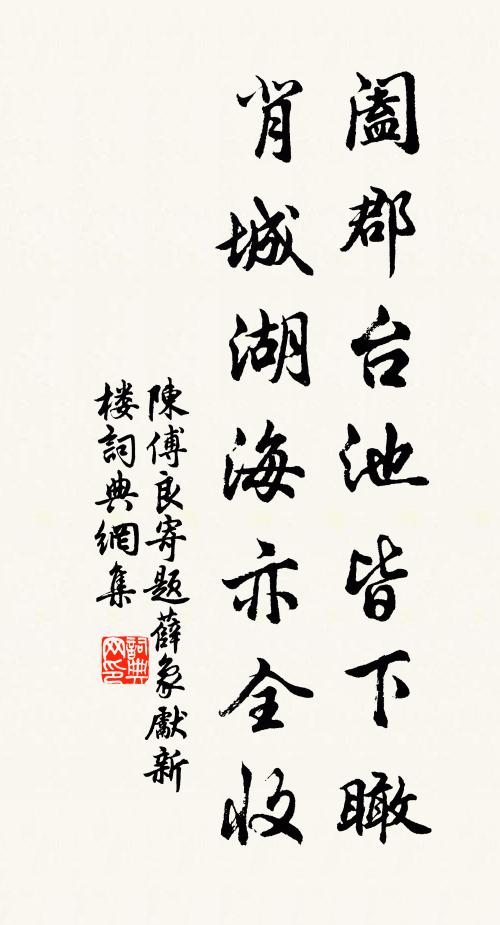 阖郡台池皆下瞰
背城湖海亦全收
陳傅良寄题薛象獻新
楼詞典網集
詞典网印